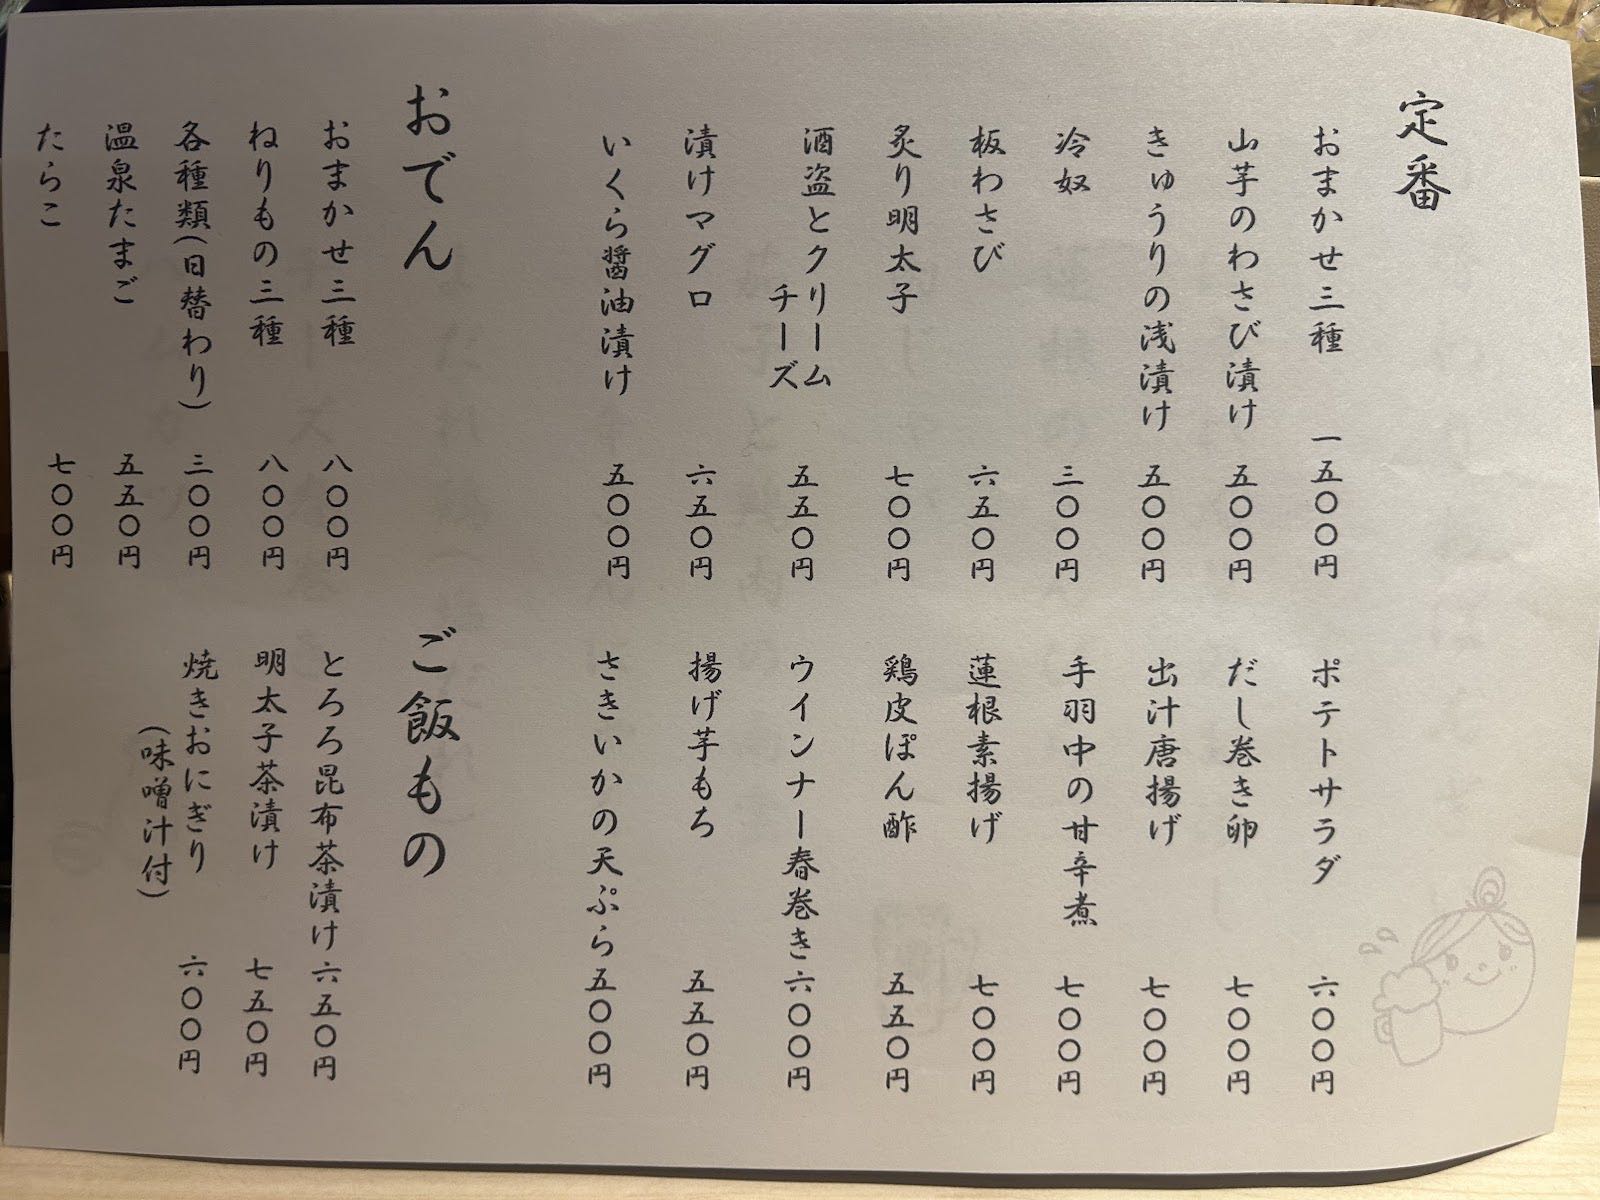 定番
おまかせ三種 一五〇〇円
山芋のわさび漬け 五〇〇円
きゅうりの浅漬け 五〇〇円
冷奴 三〇〇円
板わさび 六五〇円
炙り明太子 七〇〇円
酒盗とクリーム
チーズ 五五〇円
漬けマグロ 六五〇円
いくら醤油漬け 五〇〇円
ポテトサラダ 六〇〇円
だし巻き卵 七〇〇円
出汁唐揚げ 七〇〇円
手羽中の甘辛煮 七〇〇円
蓮根素揚げ 七〇〇円
鶏皮ぽん酢 五五〇円
ウインナー春巻き 六〇〇円
揚げ芋もち 五五〇円
さきいかの天ぷら 五〇〇円
おでん
おまかせ三種 八〇〇円
ねりもの三種 八〇〇円
各種類(日替わり) 三〇〇円
温泉たまご 五五〇円
たらこ 七〇〇円
ご飯もの
とろろ昆布茶漬け 六五〇円
明太子茶漬け 七五〇円
焼きおにぎり
(味噌汁付) 六〇〇円